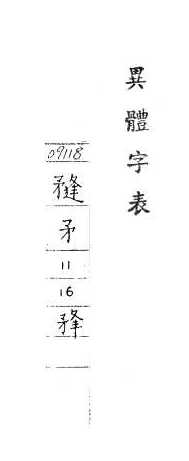 異體字表
09118
矛
11
16